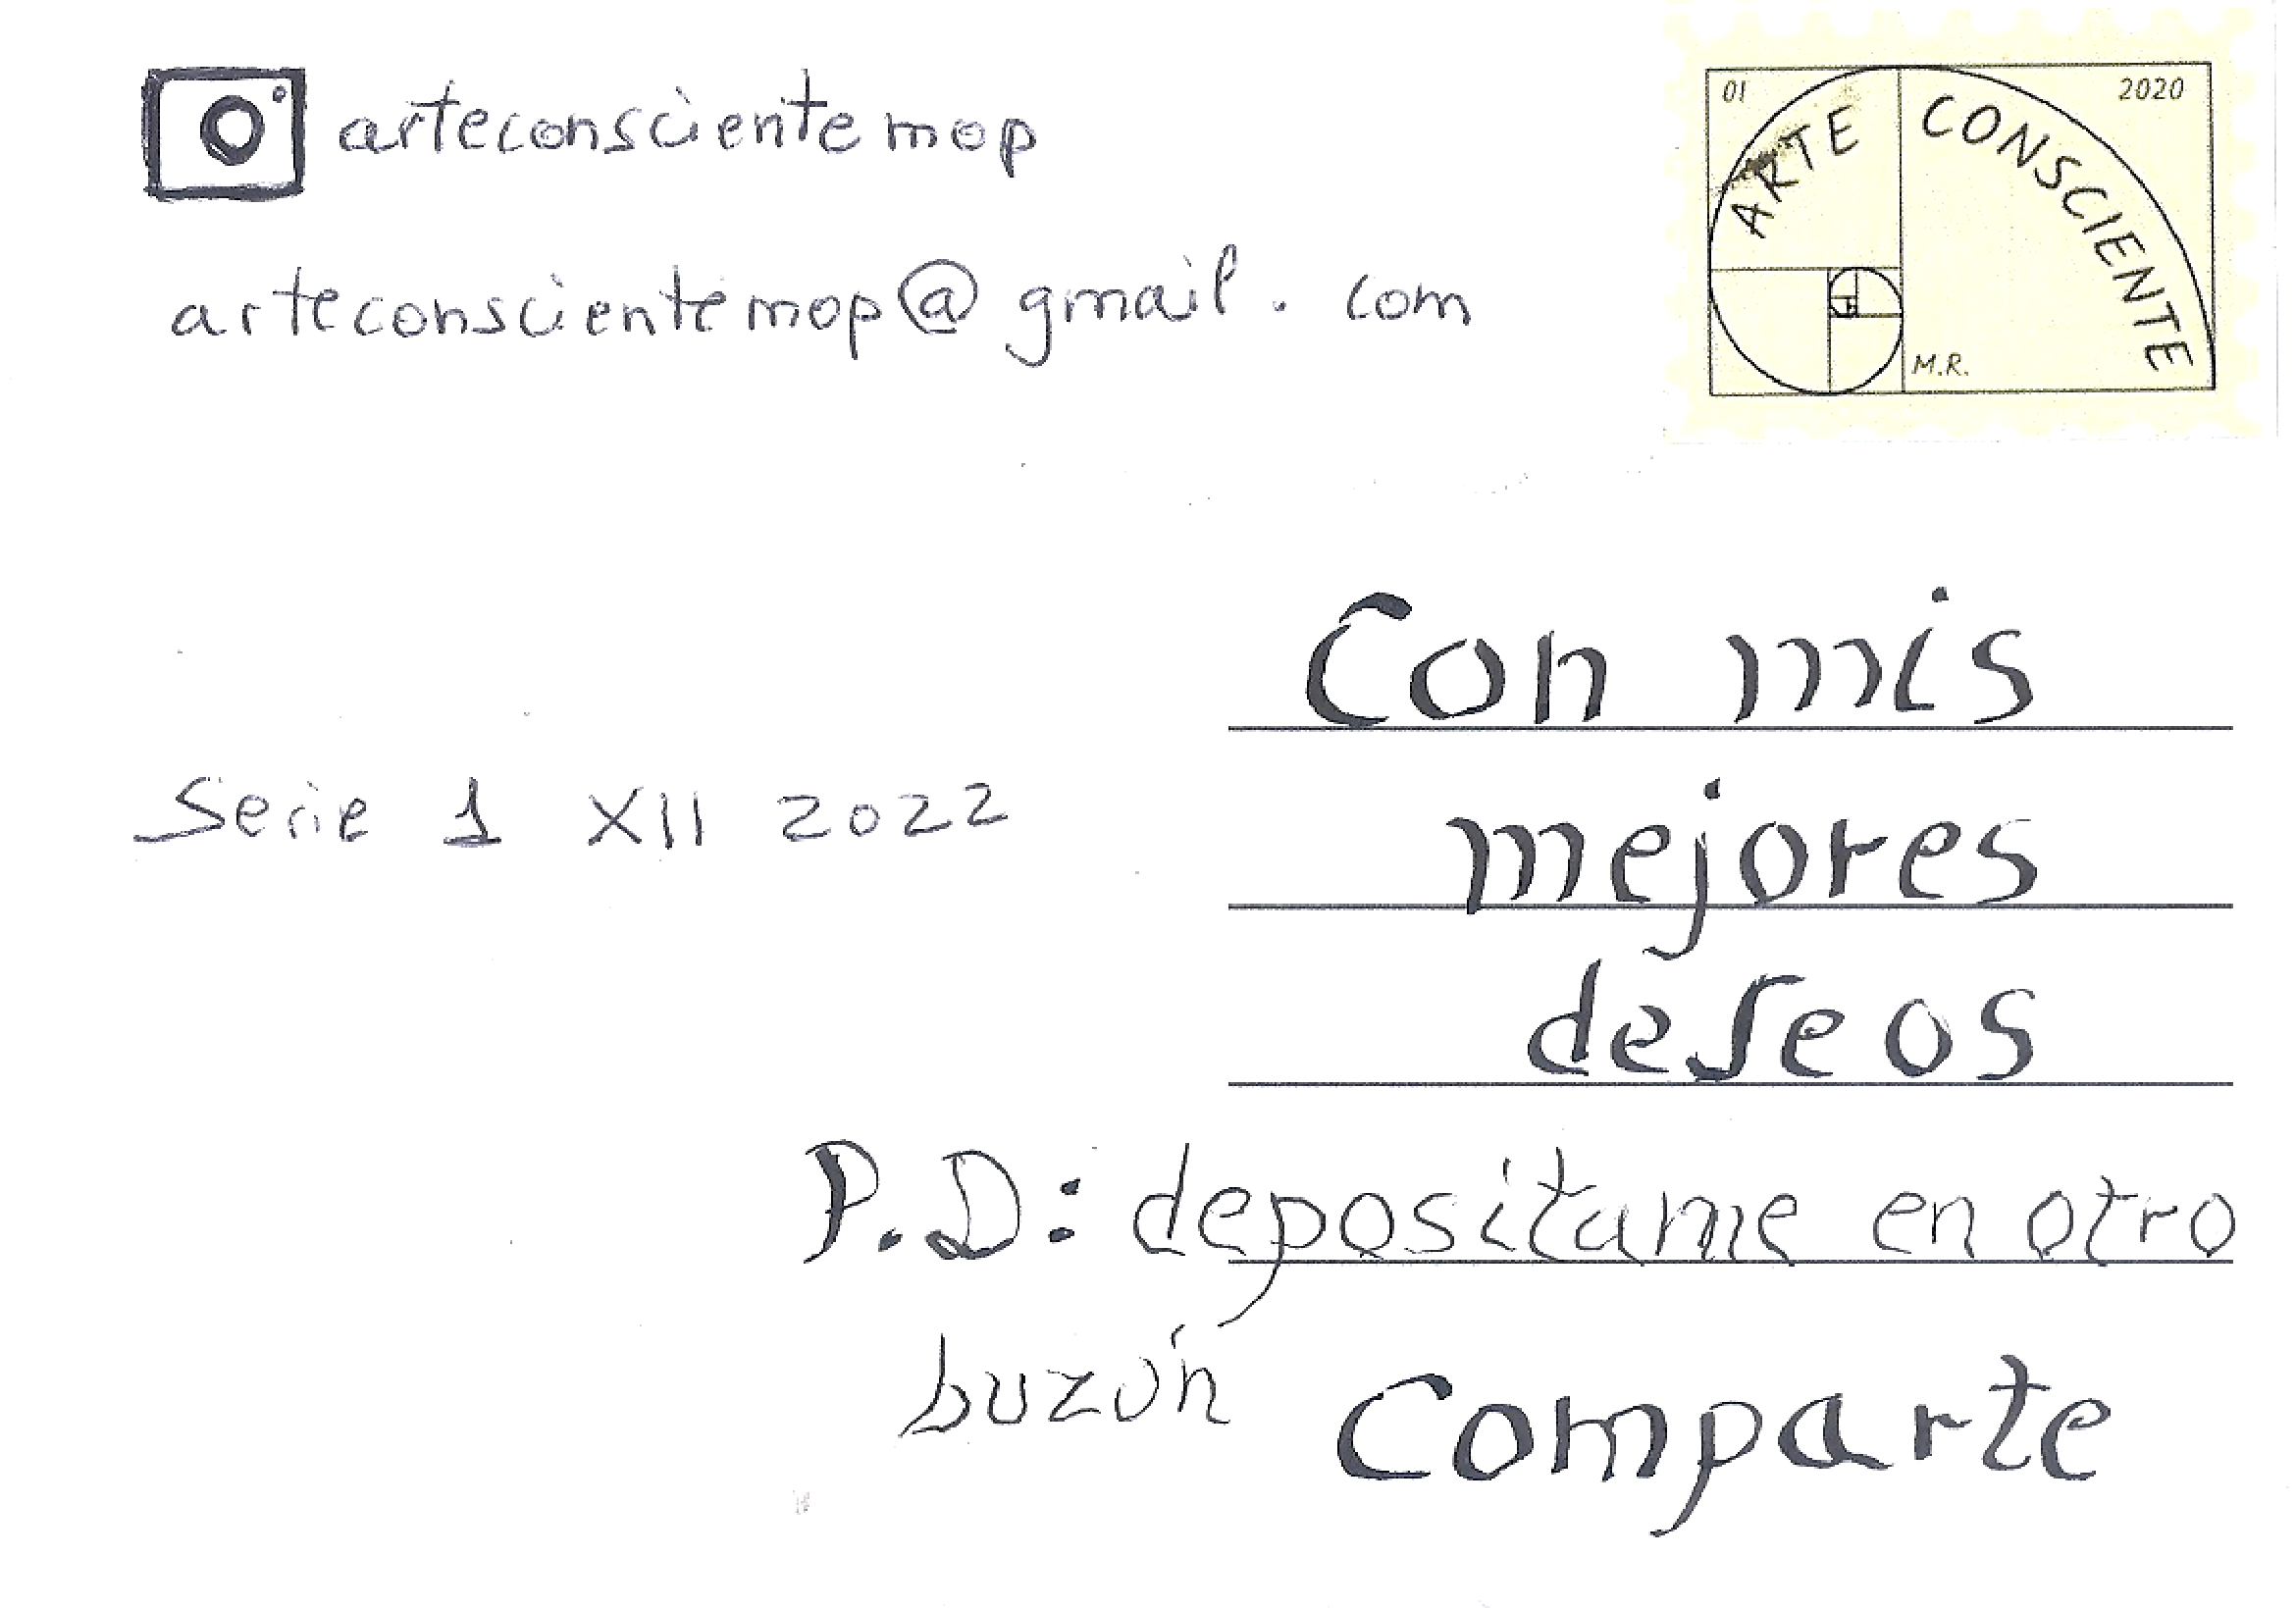 arteconscientemop
arteconscientemop@gmail.com
01 2020
ARTE CONSCIENTE
M.R.
Con mis
mejores
deseos
Serie 1 XII 2022
P.D: depositame en otro
buzón Comparte